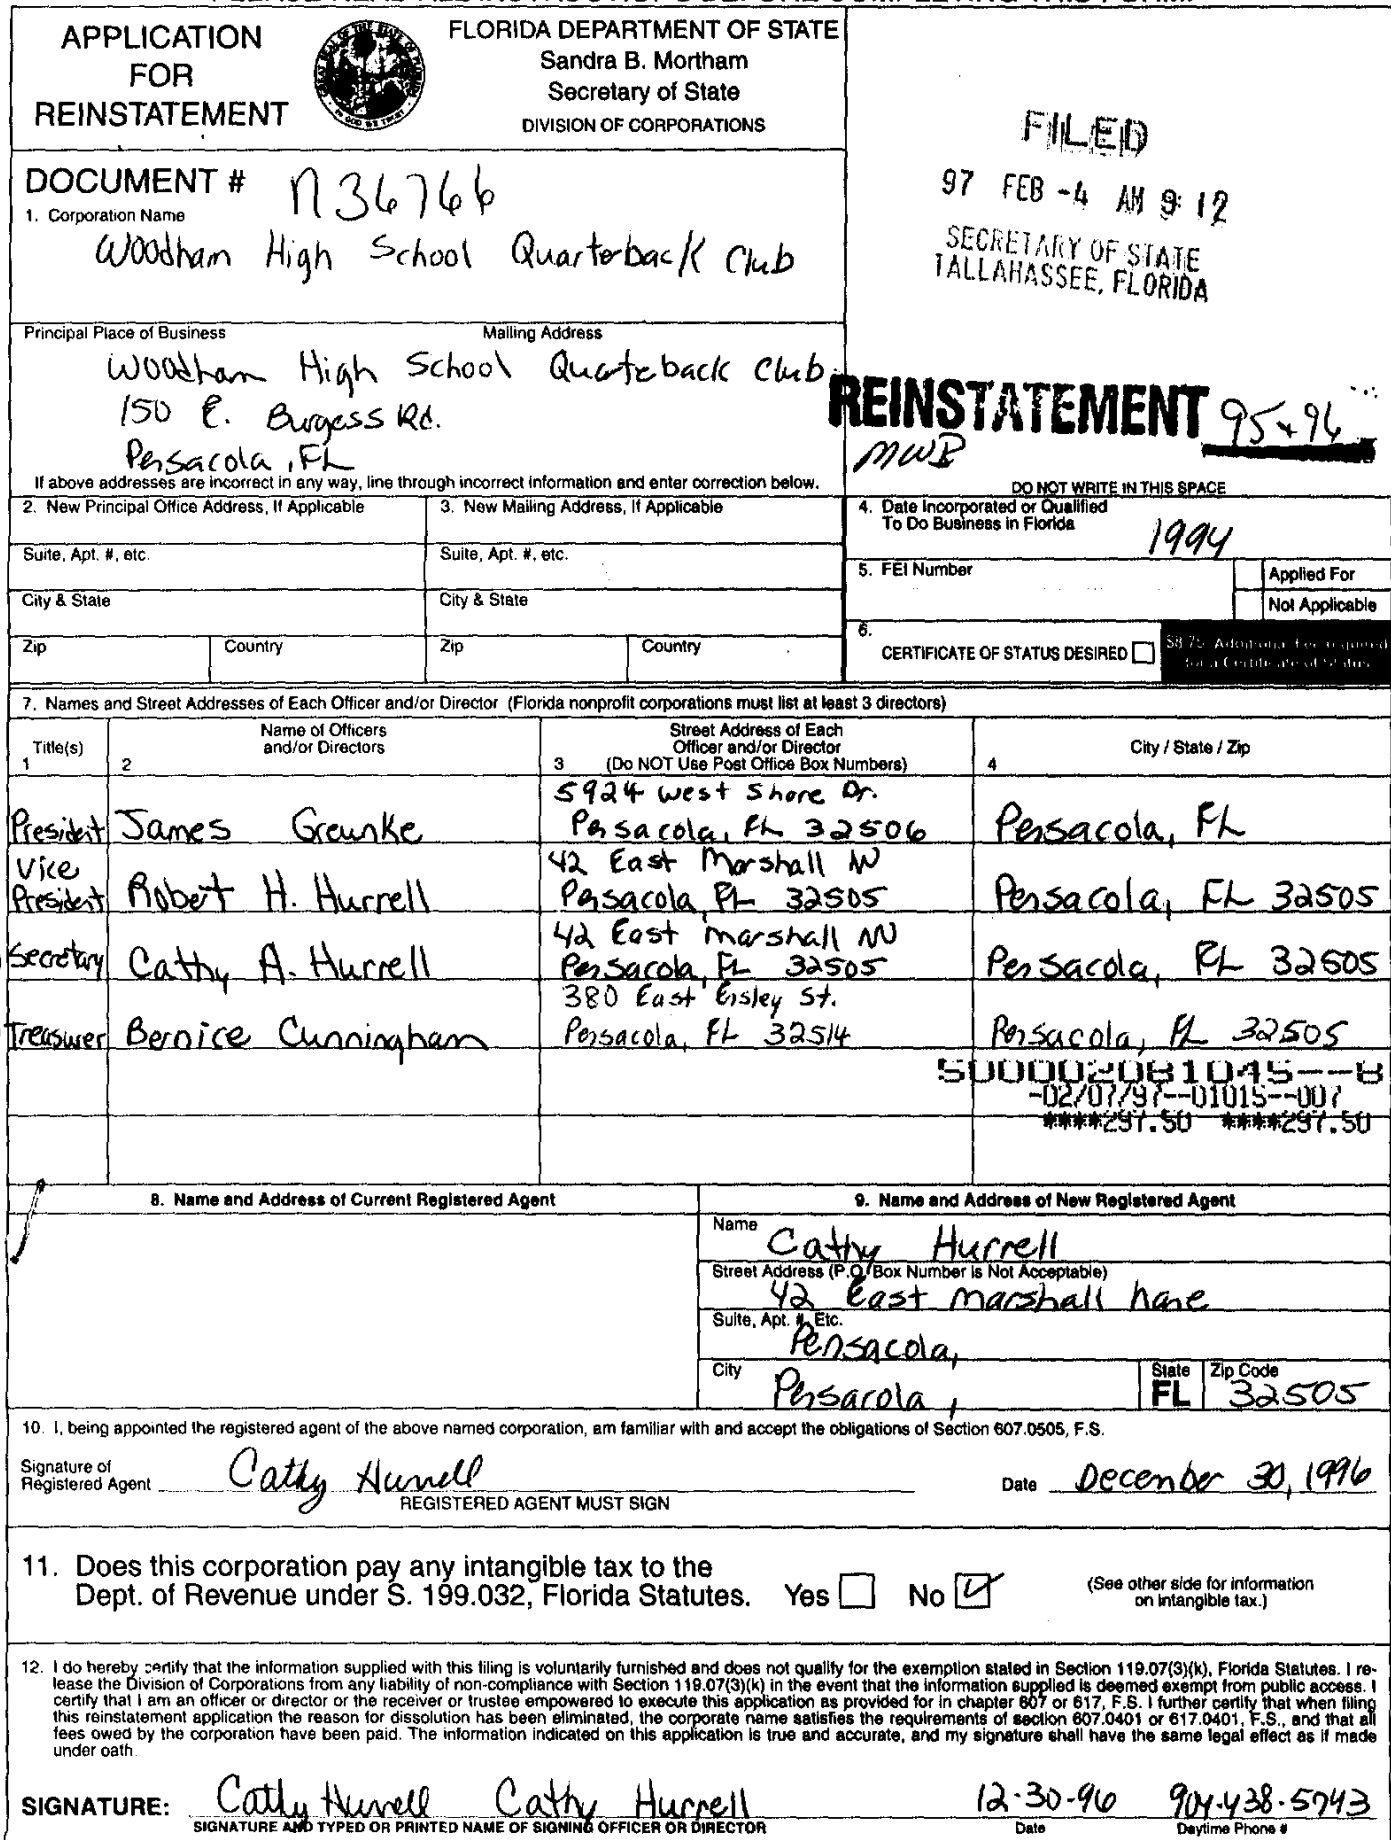 APPLICATION
FOR
REINSTATEMENT
FLORIDA DEPARTMENT OF STATE
Sandra B. Mortham
Secretary of State
DIVISION OF CORPORATIONS
FILED
97 FEB -4 AM 9:12
SECRETARY OF STATE
TALLAHASSEE, FLORIDA
DOCUMENT # N36766
1. Corporation Name
Woodham High School Quarterback Club
Principal Place of Business Mailing Address
Woodham High School Quateback Club
150 E. Burgess Rd.
Pensacola, FL
REINSTATEMENT 95+96
MWB
If above addresses are incorrect in any way, line through incorrect information and enter correction below.
DO NOT WRITE IN THIS SPACE
2. New Principal Office Address, If Applicable
3. New Mailing Address, If Applicable
4. Date Incorporated or Qualified
To Do Business in Florida 1994
Suite, Apt. #, etc. Suite, Apt. #, etc.
5. FEI Number
Applied For
Not Applicable
City & State City & State
Zip Country Zip Country
6.
CERTIFICATE OF STATUS DESIRED
$8.75 Additional Fee required
for a Certificate of Status
7. Names and Street Addresses of Each Officer and/or Director (Florida nonprofit corporations must list at least 3 directors)
Title(s)
1
Name of Officers
and/or Directors
2
Street Address of Each
Officer and/or Director
3 (Do NOT Use Post Office Box Numbers)
City / State / Zip
4
5924 West Shore Dr.
President James Greunke Pensacola, FL 32506 Pensacola, FL
Vice 42 East Marshall LN
President Robert H. Hurrell Pensacola, FL 32505 Pensacola, FL 32505
42 East Marshall LN
Secretary Cathy A. Hurrell Pensacola, FL 32505 Pensacola, FL 32505
380 East Eisley St.
Treasurer Bernice Cunningham Pensacola, FL 32514 Pensacola, FL 32505
500002081045--8
-02/07/97--01015--007
****297.50 ****297.50
8. Name and Address of Current Registered Agent
9. Name and Address of New Registered Agent
Name Cathy Hurrell
Street Address (P.O. Box Number is Not Acceptable)
42 East Marshall Lane
Suite, Apt. #, Etc.
Pensacola,
City Pensacola, State FL Zip Code 32505
10. I, being appointed the registered agent of the above named corporation, am familiar with and accept the obligations of Section 607.0505, F.S.
Signature of
Registered Agent Cathy Hurrell Date December 30, 1996
REGISTERED AGENT MUST SIGN
11. Does this corporation pay any intangible tax to the
Dept. of Revenue under S. 199.032, Florida Statutes. Yes No
(See other side for information
on intangible tax.)
12. I do hereby certify that the information supplied with this filing is voluntarily furnished and does not qualify for the exemption stated in Section 119.07(3)(k), Florida Statutes. I re-
lease the Division of Corporations from any liability of non-compliance with Section 119.07(3)(k) in the event that the information supplied is deemed exempt from public access. I
certify that I am an officer or director or the receiver or trustee empowered to execute this application as provided for in chapter 607 or 617, F.S. I further certify that when filing
this reinstatement application the reason for dissolution has been eliminated, the corporate name satisfies the requirements of section 607.0401 or 617.0401, F.S., and that all
fees owed by the corporation have been paid. The information indicated on this application is true and accurate, and my signature shall have the same legal effect as if made
under oath.
SIGNATURE: Cathy Hurrell Cathy Hurrell 12-30-96 904-438-5743
SIGNATURE AND TYPED OR PRINTED NAME OF SIGNING OFFICER OR DIRECTOR Date Daytime Phone #